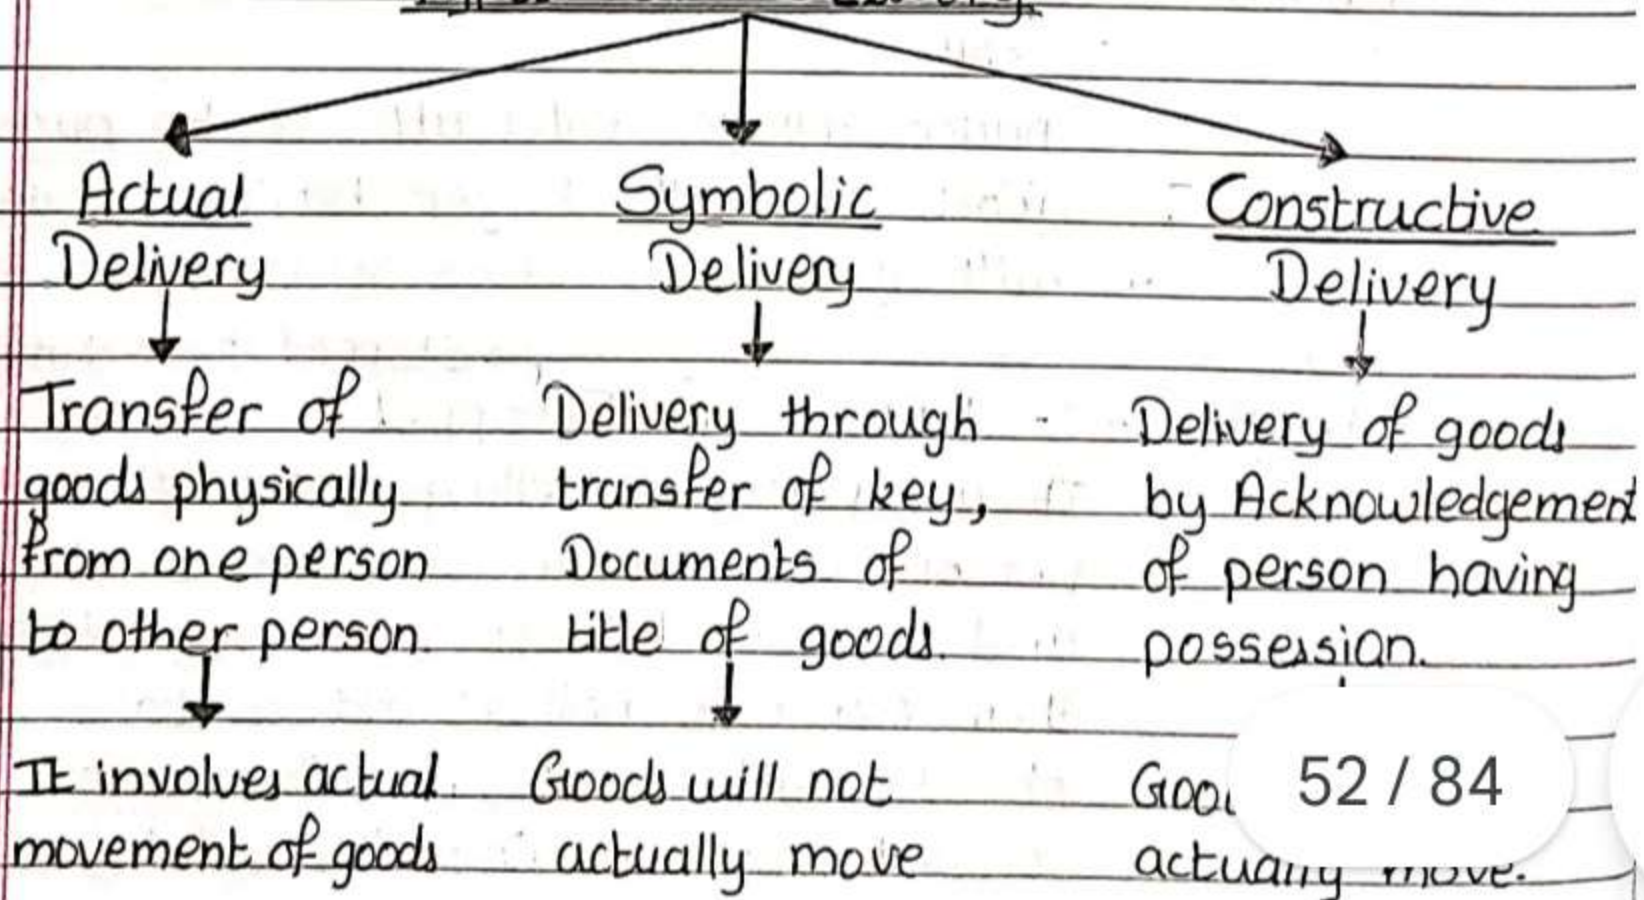 Actual
Delivery
Transfer of
goods physically
from one person
to other person.
It involves actual
movement of goods
Symbolic
Delivery
Delivery through
transfer of key,
Documents of
title of goods.
Goods will not
actually move
Constructive
Delivery
Delivery of goods
by Acknowledgement
of person having
possession.
actually move.
52 / 84